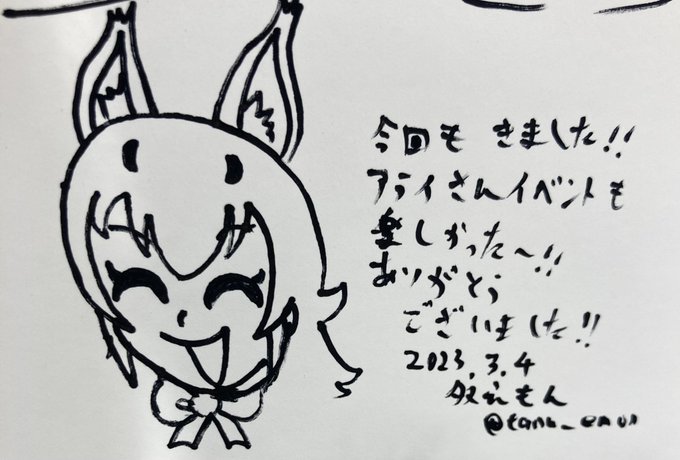 今回も きました!!
アライさんイベントも
楽しかった〜!!
ありがとう
ございました!!
2023.3.4
もん